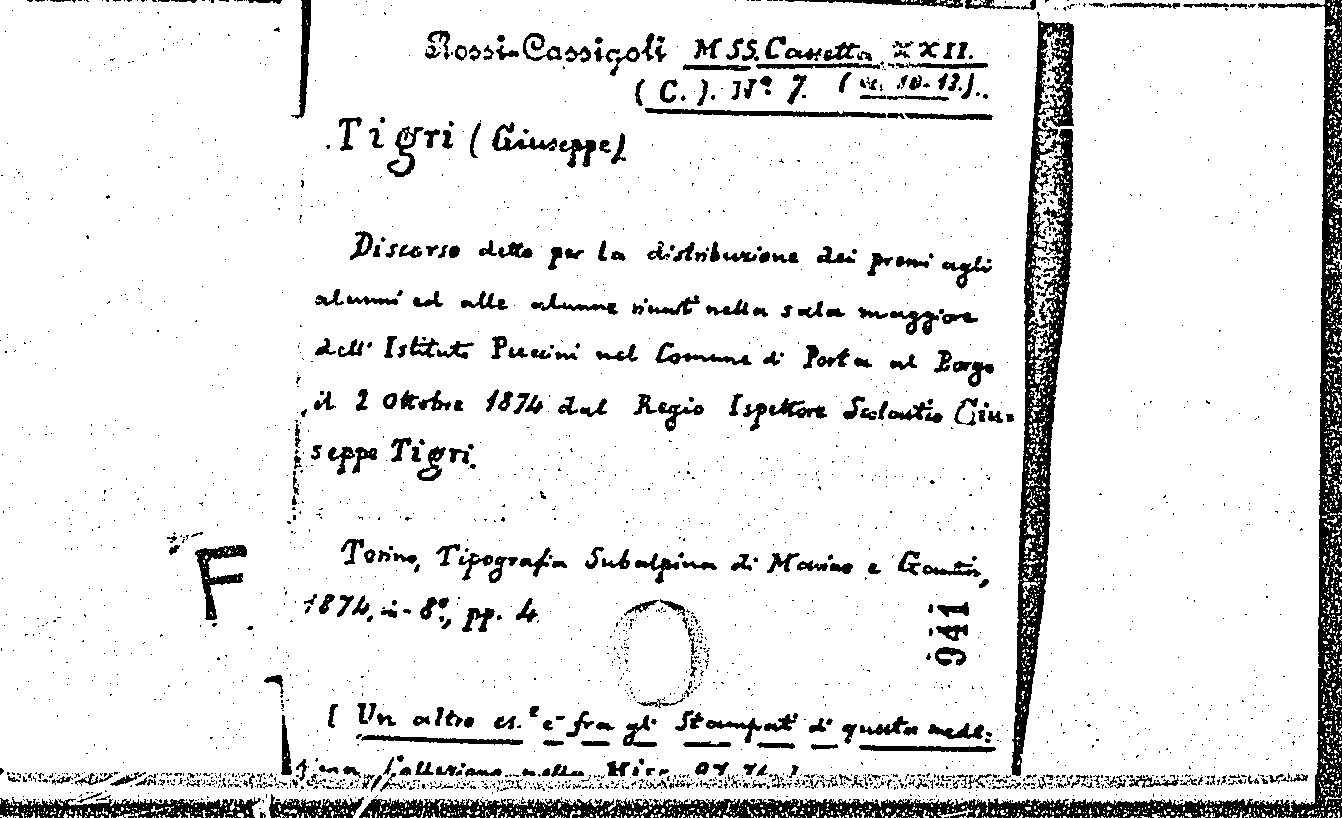 Rossi-Cassigoli MSS. Cassetta XXII.
(C.). Nº 7. (cc. 10-13.)..
Tigri (Giuseppe)
Discorso detto per la distribuzione dei premi agli
alunni ed alle alunne riuniti nella sala maggiore
dell' Istituto Puccini nel Comune di Porta al Borgo
il 2 Ottobre 1874 dal Regio Ispettore Scolastico Giu-
seppe Tigri.
Torino, Tipografia Subalpina di Marino e Gantin,
1874, in-8º, pp. 4
F
941
[ Un altro es.e è fra gli Stampati di questa mede-
sima Collezione nella Misc.